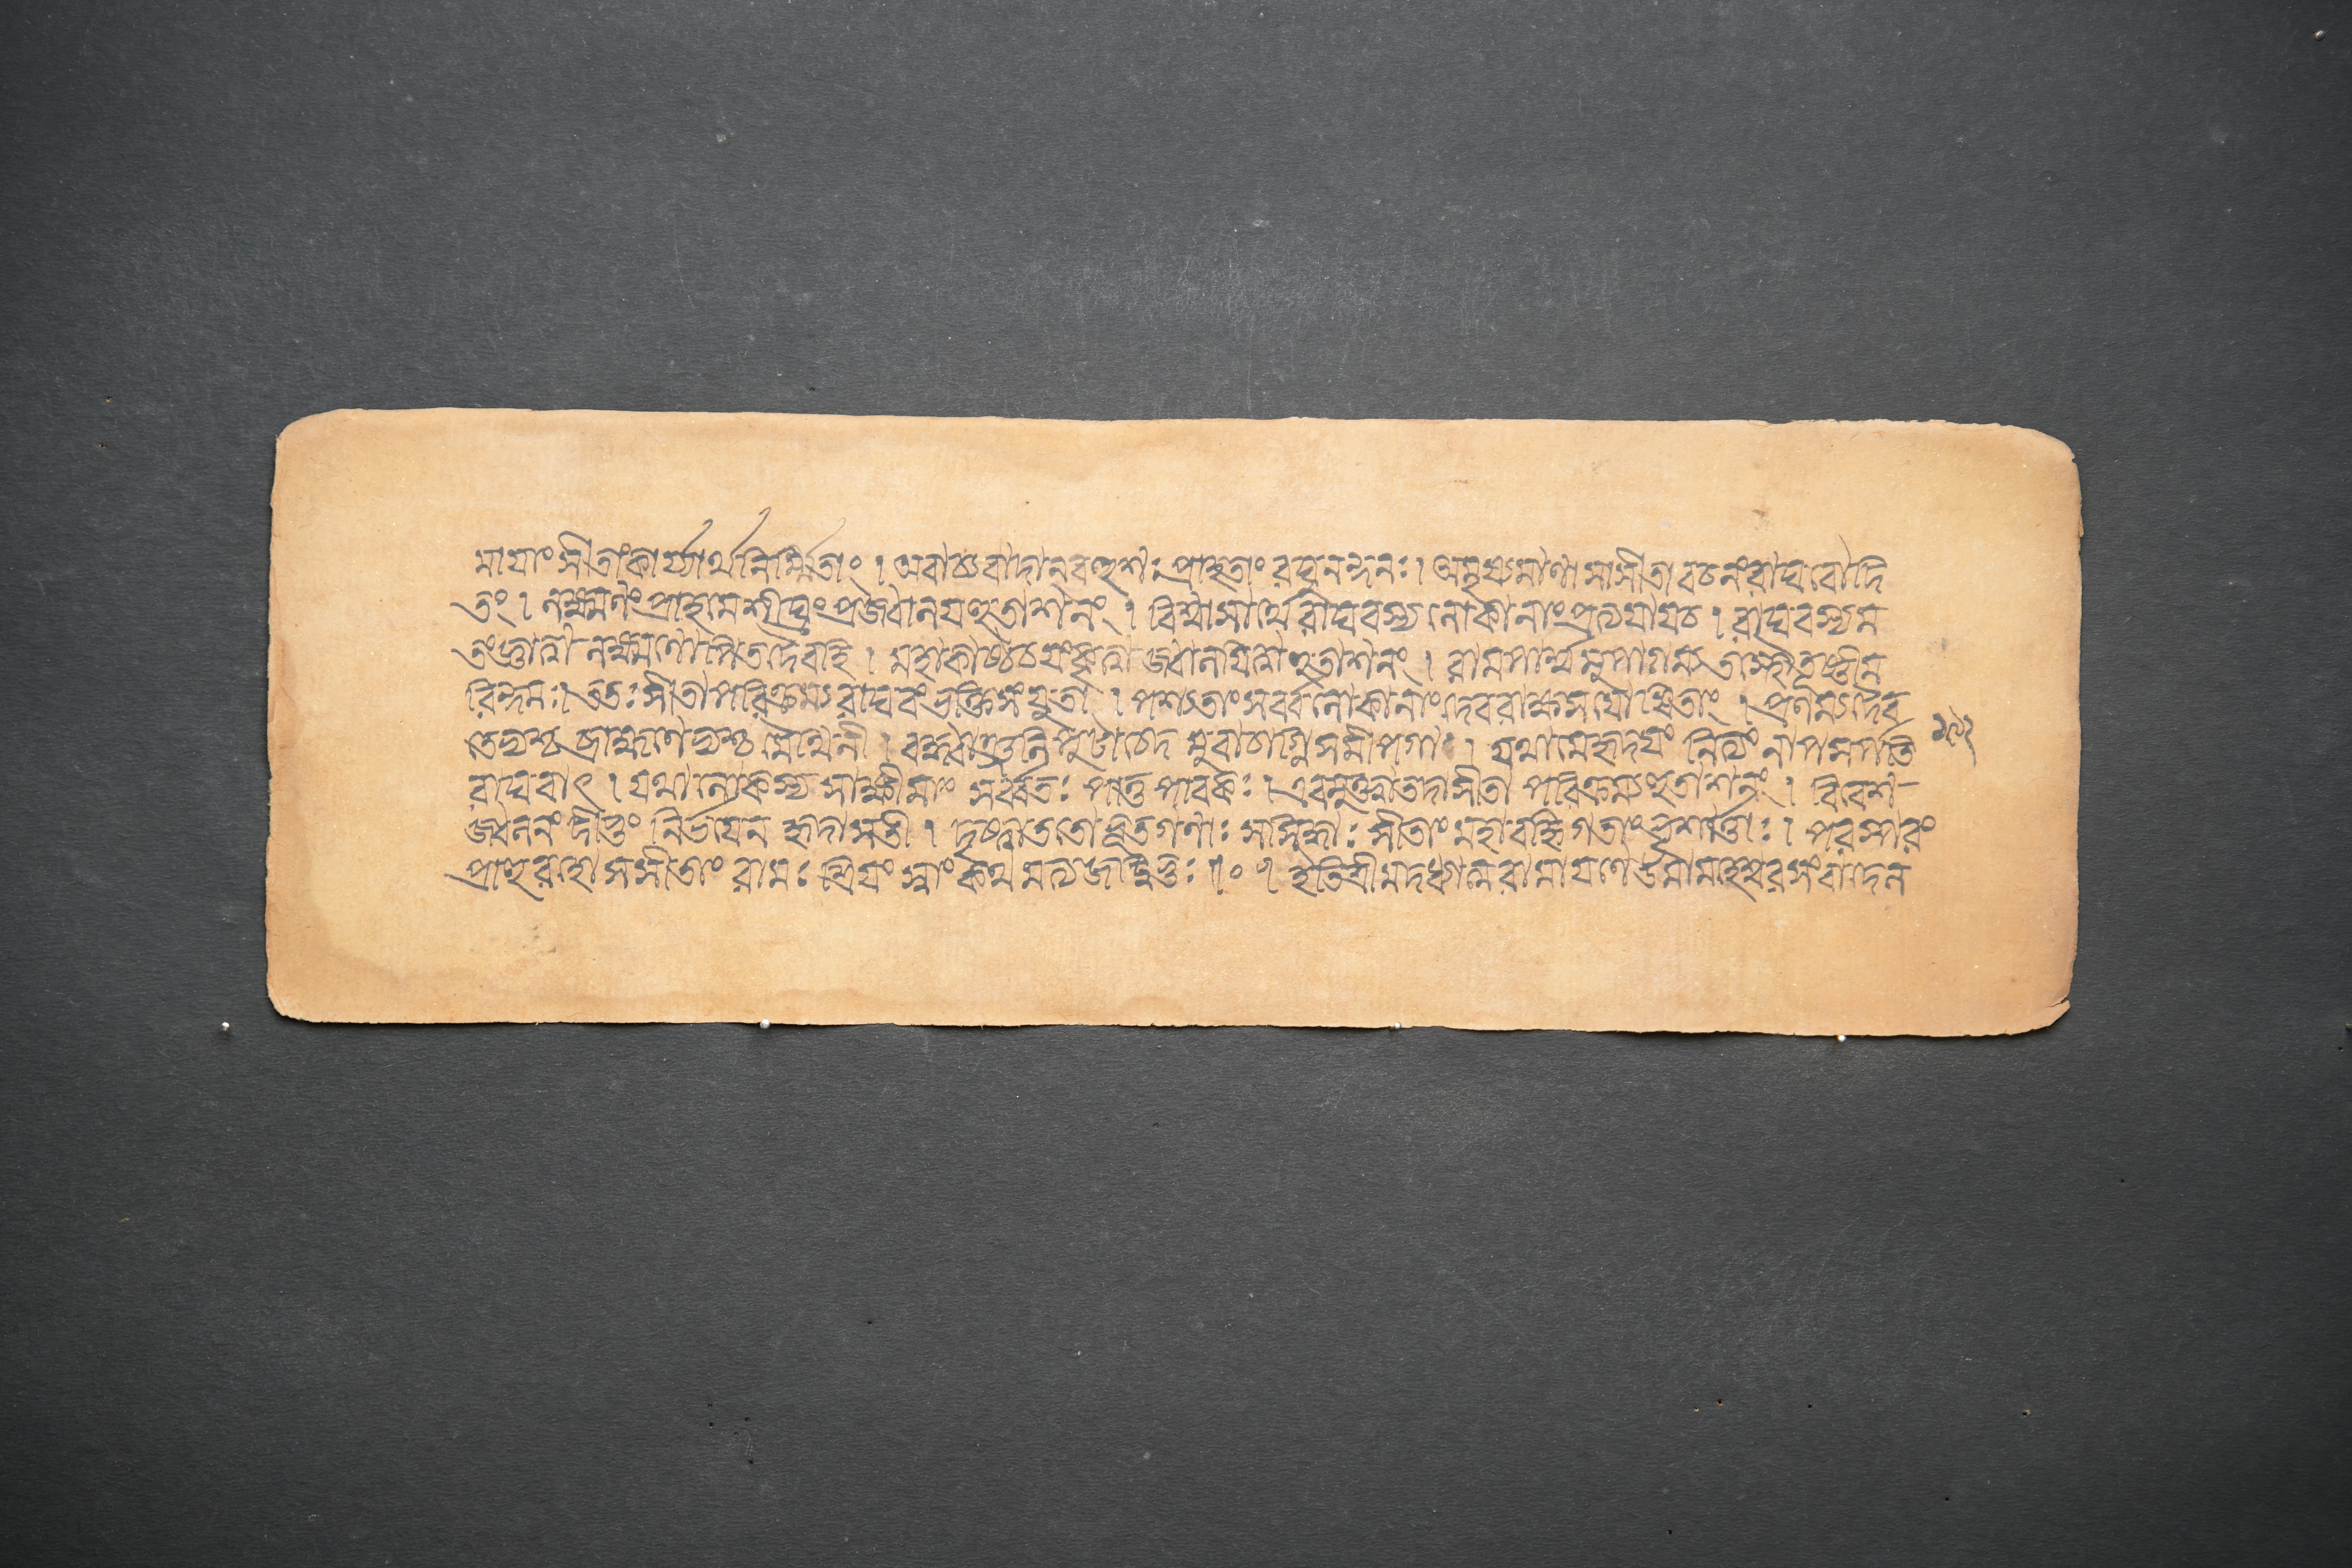 মায়াং সীতাং কার্য্যার্থনির্ম্মিতাং । অবাচ্যবাদান্ বহুশঃ প্রাহ তাং রঘুনন্দনঃ । অমৃষ্যমাণা সা সীতা বচনং রাঘবোদি
তং । লক্ষ্মণং প্রাহ মে শীঘ্রং প্রজ্বালয় হুতাশনং । বিশ্বাসার্থে রাঘবস্য লোকানাং প্রত্যয়ায় চ । রাঘবস্য ম
তং জ্ঞাত্বা লক্ষ্মণোপি তদৈব হি । মহাকাষ্ঠচয়ং কৃত্বা জ্বালয়িত্বা হুতাশনং । রামপার্শ্বমুপাগম্য তস্থৌ তূষ্ণীম
রিন্দমঃ । ততঃ সীতা পরিক্রম্য রাঘবং ভক্তিসংযুতা । পশ্যতাং সর্ব্বলোকানাং দেবরাক্ষসযোষিতাং । প্রণম্য দেব
তেভ্যশ্চ ব্রাহ্মণেভ্যশ্চ মৈথিলী । বদ্ধাঞ্জলিপুটা চেদমুবাচাগ্নিসমীপগা । যথা মে হৃদয়ং নিত্যং নাপসর্পতি
রাঘবাৎ । তথা লোকস্য সাক্ষী মাং সর্ব্বতঃ পাতু পাবকঃ । এবমুক্ত্বা তদা সীতা পরিক্রম্য হুতাশনং । বিবেশ-
জ্বলনং দীপ্তং নির্ভয়েন হৃদা সতী । দৃষ্ট্বা ততো ভূতগণাঃ সসিদ্ধাঃ সীতাং মহাবহ্নিগতাং ভৃশার্ত্তাঃ । পরস্পরং
প্রাহুরহো স সীতাং রামঃ শ্রিয়ং স্বাং কথমত্যজজ্জ্ঞঃ ॥০॥ ইতি শ্রীমদধ্যাত্মরামায়ণে উমামহেশ্বরসংবাদে ল